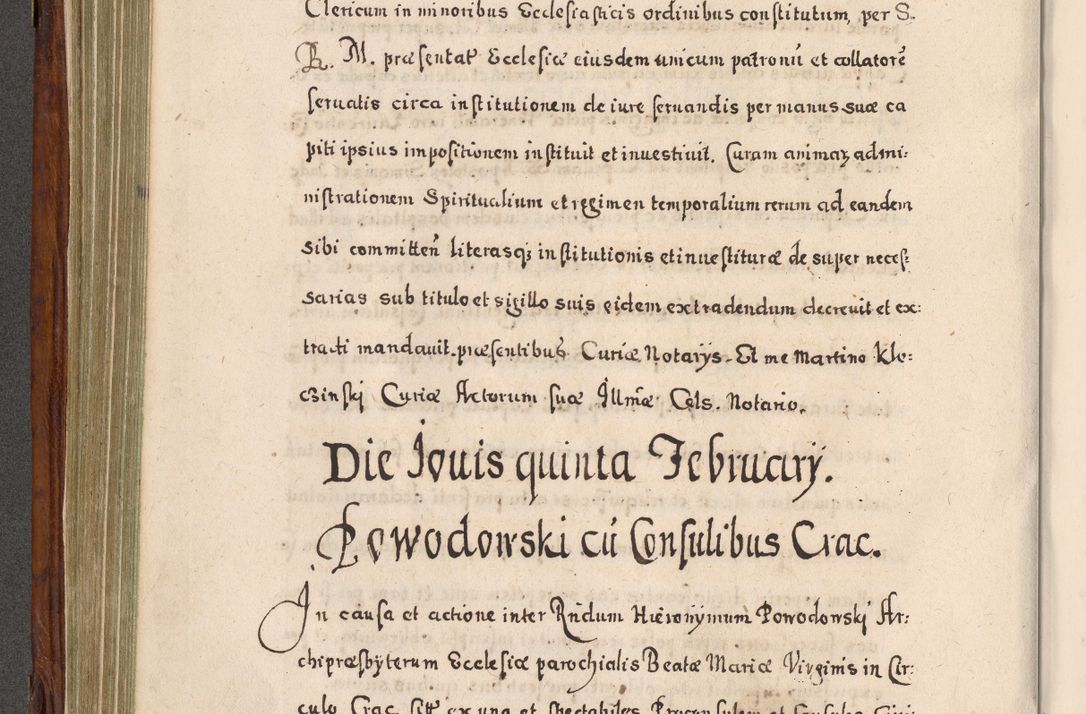 Clericum in minoribus Ecclesiasticis ordinibus constitutum, per S.
R. M. præsentat Ecclesiæ eiusdem unicum patronũ et collatorẽ
seruatis circa institutionem de iure seruandis per manus suæ ca
piti ipsius impositionem instituit et inuestiuit. Curam animaꝝ admi:
nistrationem Spiritualium et regimen temporalium rerum ad eandem
sibi committeñ literasqꝫ institutionis et inuestituræ de super neces:
sarias sub titulo et sigillo suis eidem extradendum decreuit et ex:
tradi mandauit. præsentibus Curiæ Notarys. Et me Martino Klo:
czinski Curiæ Actorum suæ Illmæ Cels. Notario.
Die Iouis quinta February.
Powodowski cũ Consulibus Crac.
In causa et actione inter Rñdum Hieronymum Powodowski Ar:
chipræsbyterum Ecclesiæ parochialis Beatæ Mariæ Virginis in Cir:
culo Crac. ex una et Spectabiles Proconsulem et Consules